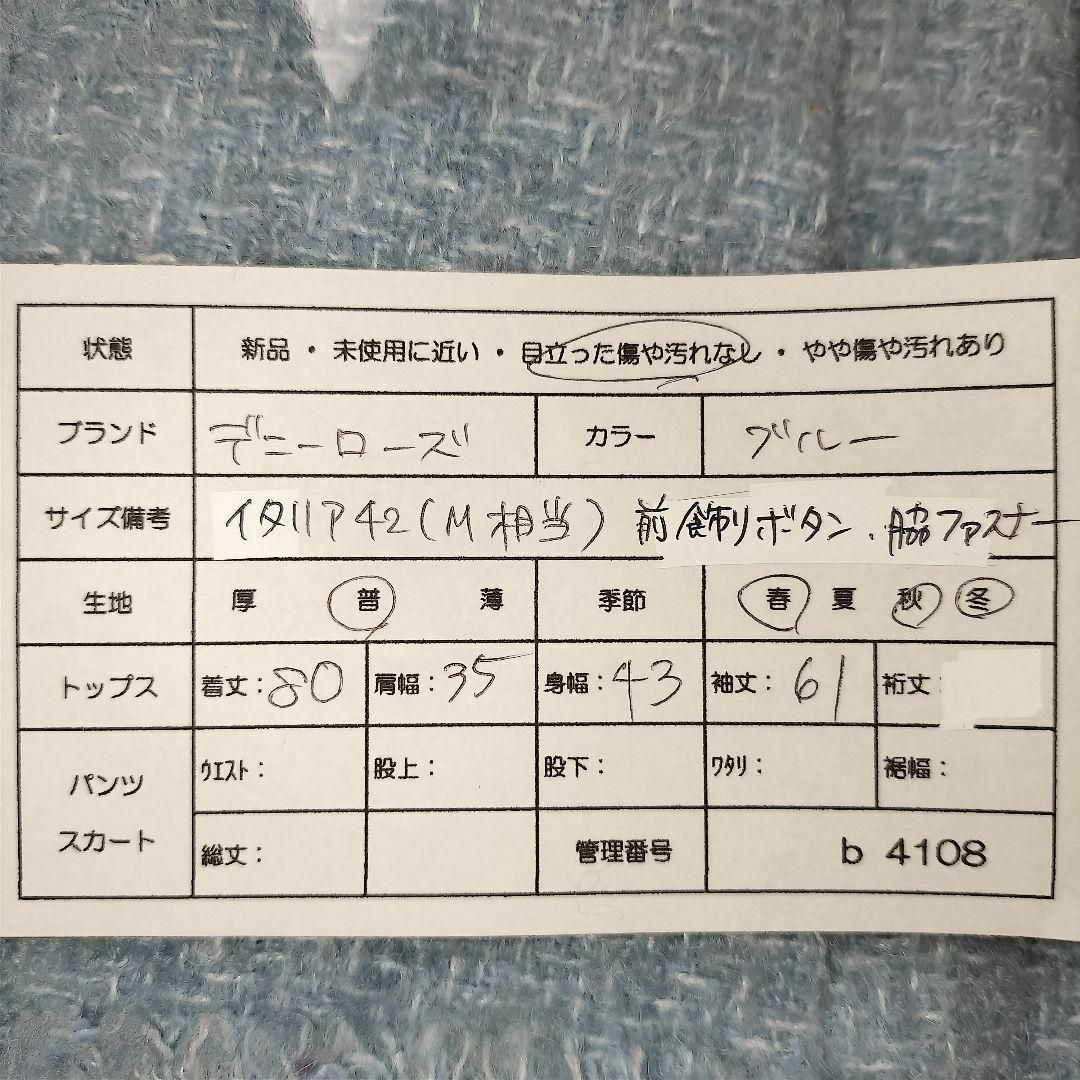 状態 新品・未使用に近い・目立った傷や汚れなし・やや傷や汚れあり
ブランド デニーローズ カラー ブルー
サイズ備考 イタリア42(M相当) 前飾りボタン、脇ファスナー
生地 厚 普 薄 季節 春 夏 秋 冬
トップス 着丈:80 肩幅:35 身幅:43 袖丈:61 裄丈:
パンツ スカート ウエスト: 股上: 股下: ワタリ: 裾幅:
総丈: 管理番号 b 4108